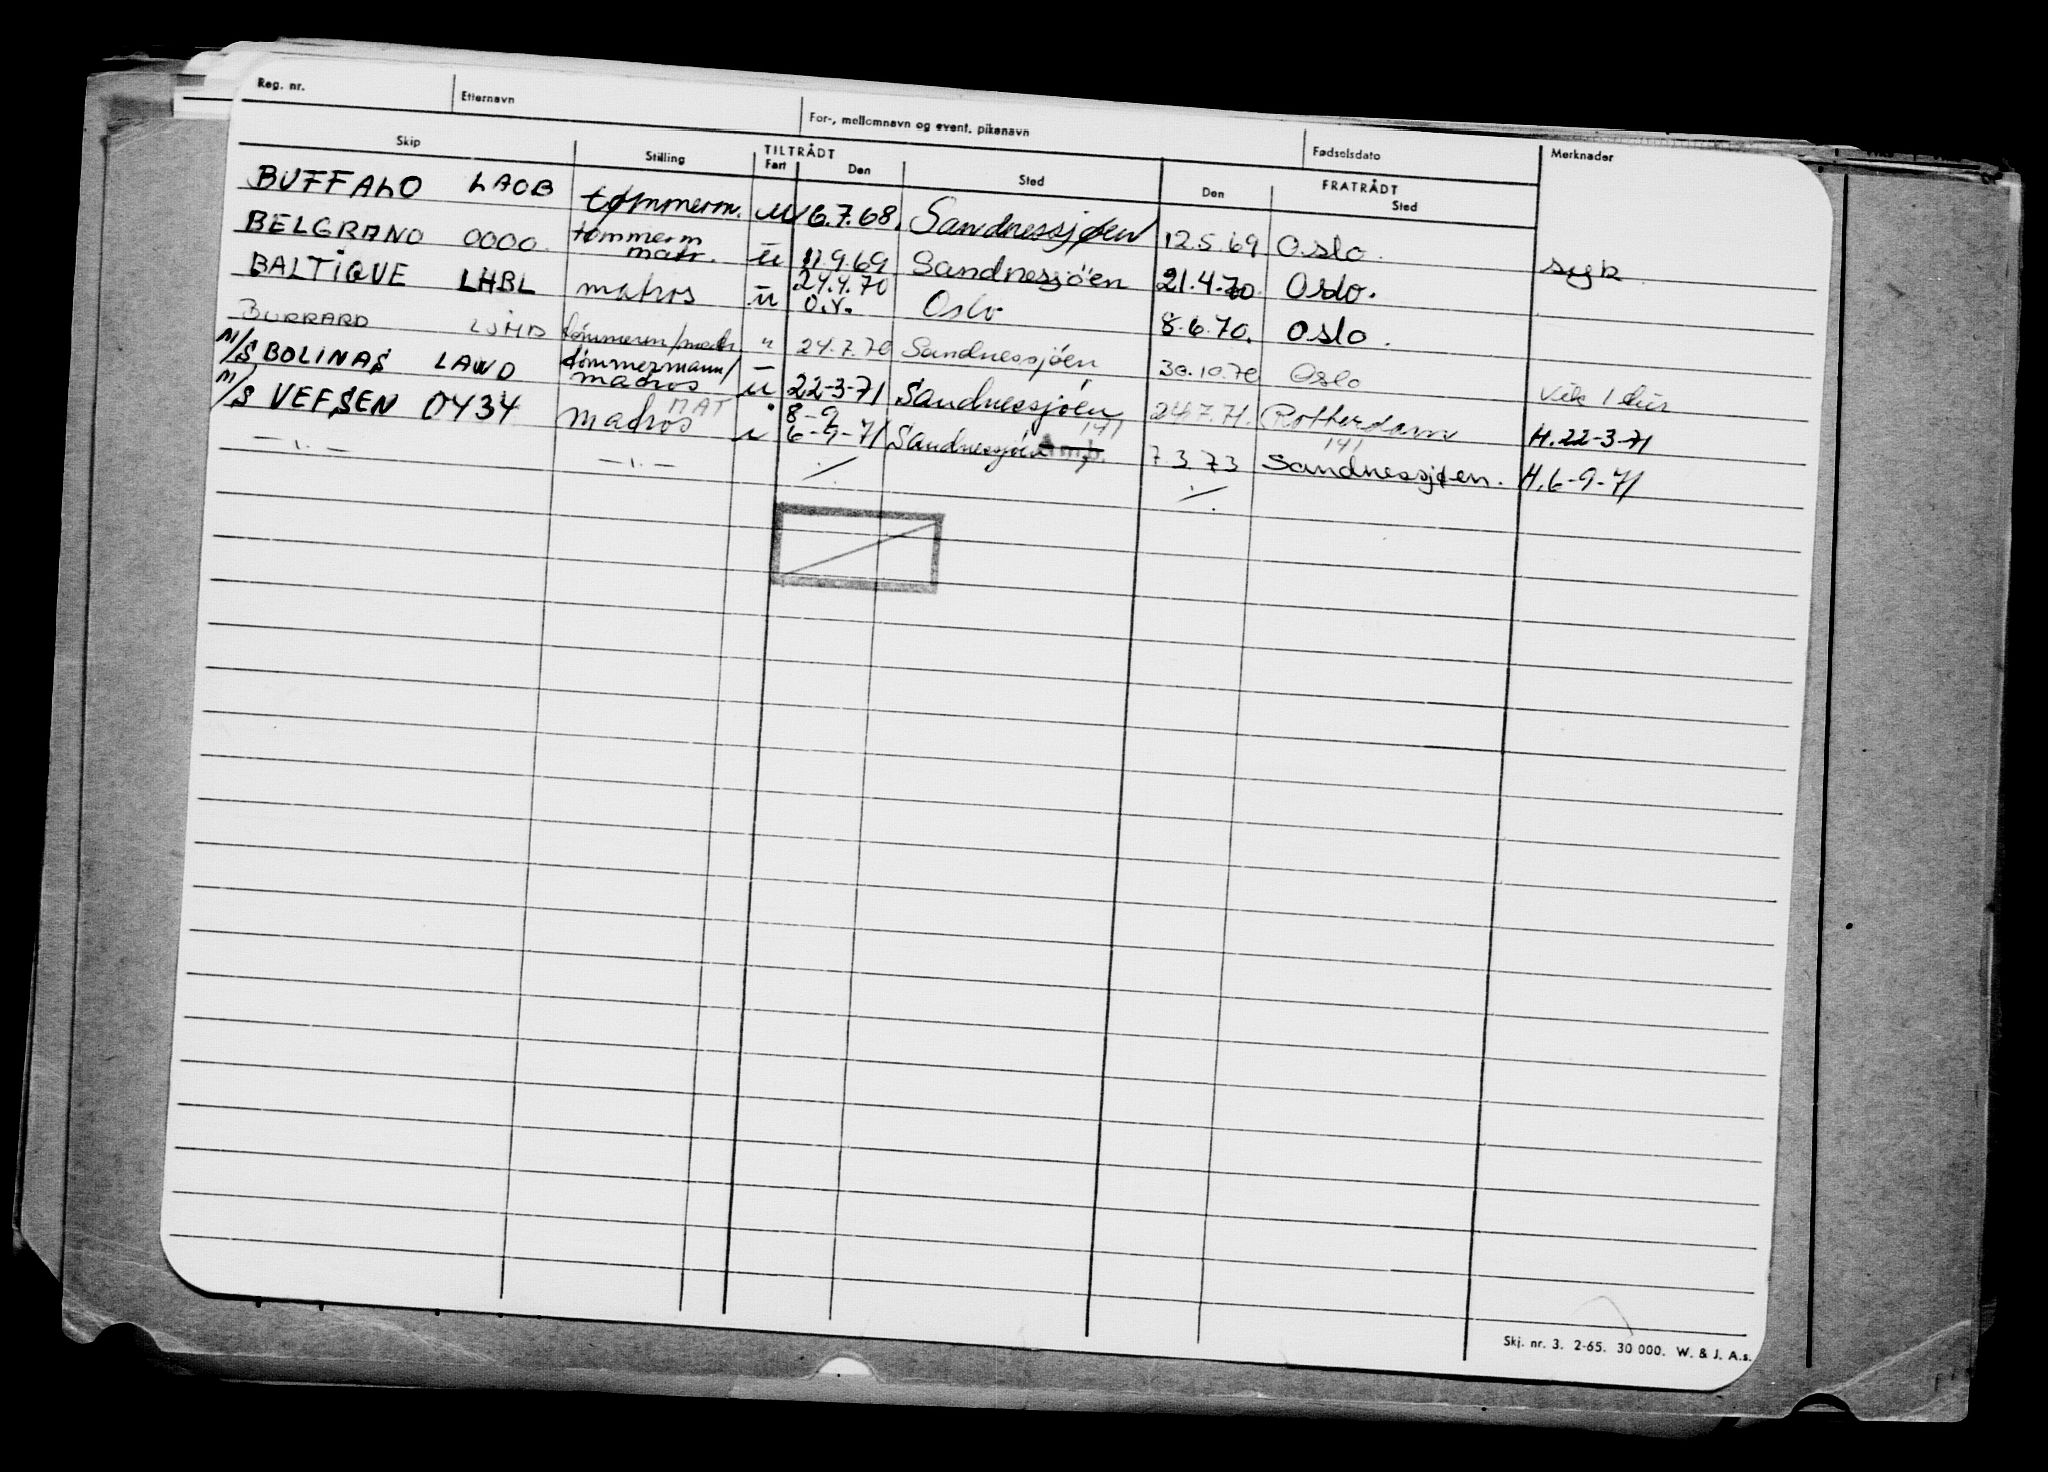 Reg. nr. Etternavn For-, mellomnavn og event. pikenavn Fødselsdato Merknader
Skip Stilling TILTRÅDT FRATRÅDT
Fart Den Sted Den Sted
BUFFALO LAOB tømmerm. u 6.7.68. Sandnessjøen 12.5.69 Oslo. syk
BELGRANO 0000. tømmerm matr. u 11.9.69 Sandnessjöen 21.4.70. Oslo.
BALTIQUE LHBL matros u 24.4.70 O.r. Oslo 8.6.70. Oslo.
BURRARD tømmerm/matr " 24.7.70 Sandnessjöen 30.10.70 Oslo
M/S BOLINAS LAWD tømmermann/matros u 22-3-71 Sandnessjöen 24.7.71. Rotterdam H.22-3-71
M/S VEFSEN 0434 matros MAT 8-9 6-9-71 Sandnessjöen 141 7 3 73 Sandnessjøen. 141 H.6-9-71
— ı. — — ı. — ./. ./.
Skj. nr. 3. 2-65. 30 000. W. & J. A.s.